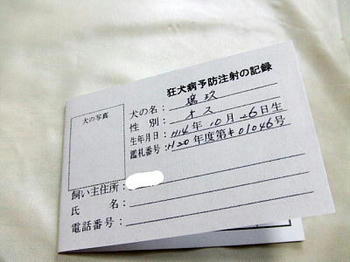 狂犬病予防注射の記録
犬の写真
犬の名：
性別：オス
生年月日：H14年10月26日生
鑑札番号：H20年度第＃01046号
飼い主住所：
氏名：
電話番号：